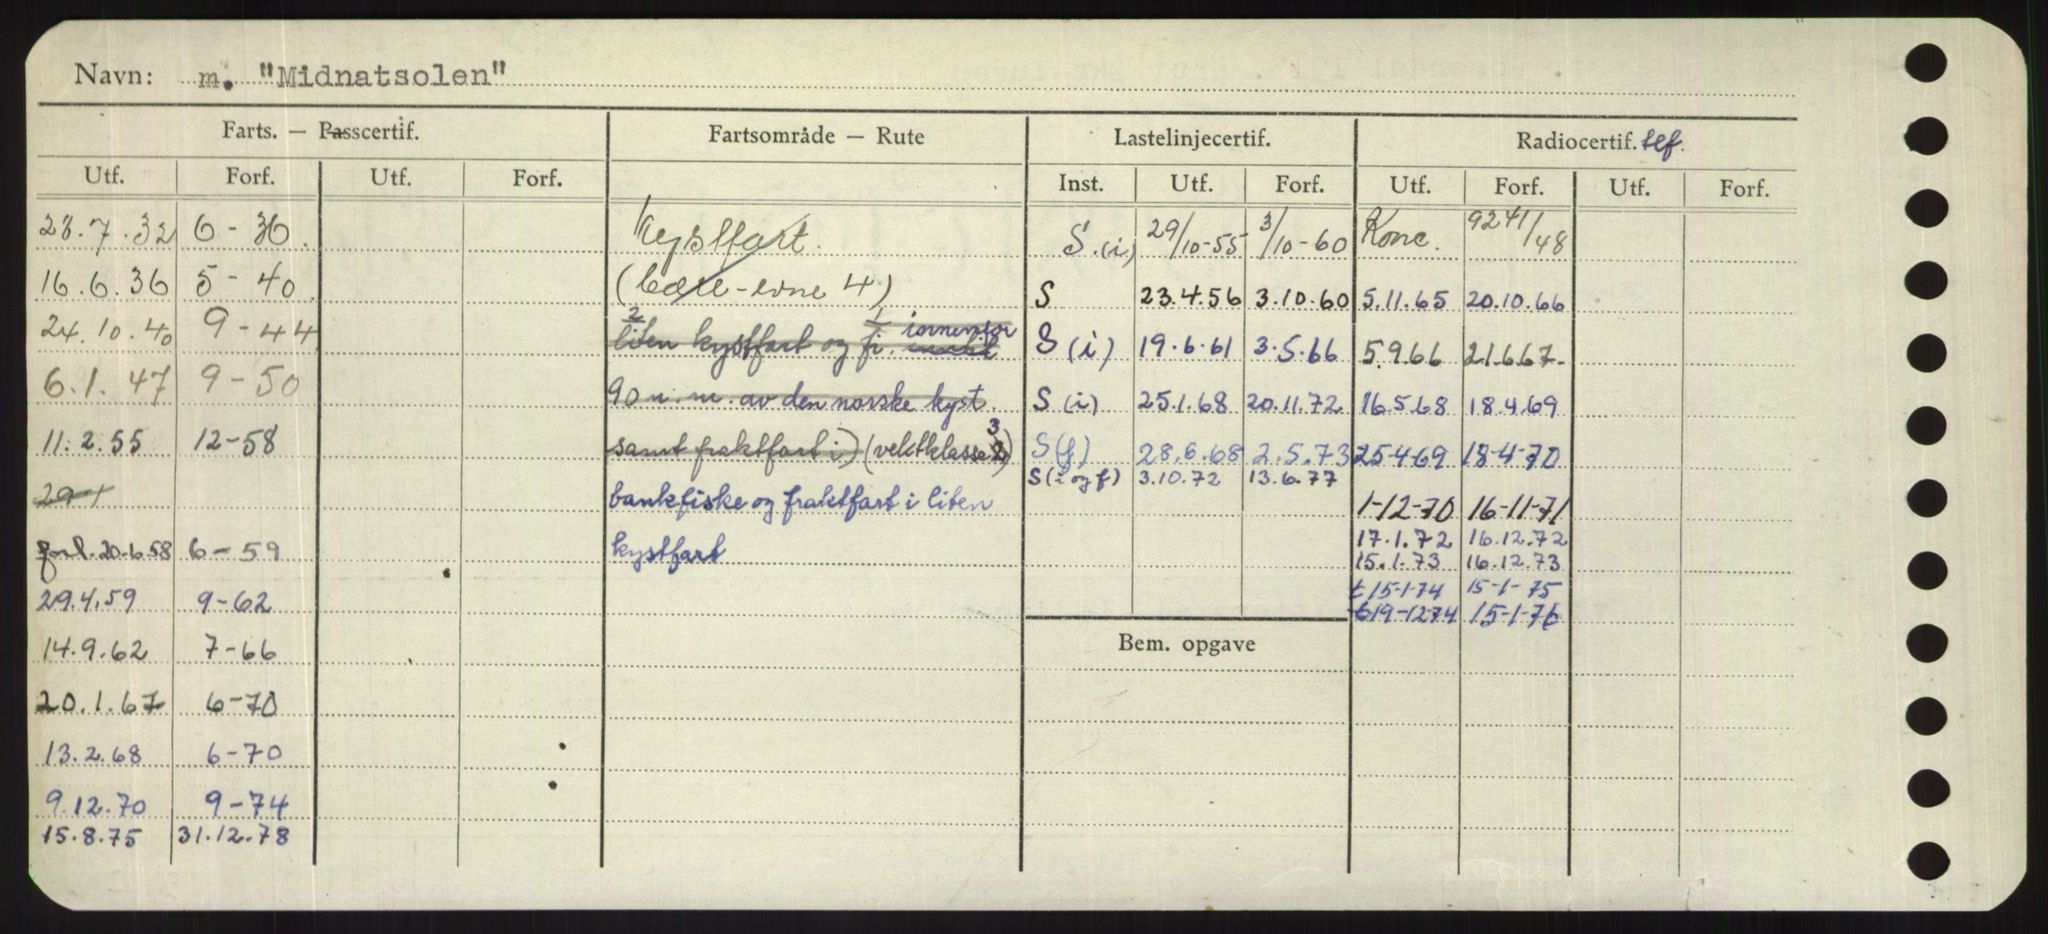 Navn: m. "Midnatsolen"
Farts. — Passcertif. Fartsområde — Rute Lastelinjecertif. Radiocertif. tlf.
Utf. Forf. Utf. Forf. Inst. Utf. Forf. Utf. Forf. Utf. Forf.
28.7.32 6-36. Kystfart. S.(i) 29/10-55 3/10-60 Konc. 9241/48
16.6.36 5-40 (bære-evne 4) S 23.4.56 3.10.60 5.11.65 20.10.66
24.10.40 9-44 2 liten kystfart og 1 fi. innenfor S(i) 19.6.61 3.5.66 5.9.66 21.6.67.
6.1.47 9-50 90 n.m. av den norske kyst. S(i) 25.1.68 20.11.72 16.5.68 18.4.69
11.2.55 12-58 samt fraktfart i) (vektklasse 3) S(f) 28.6.68 2.5.73 25-4-69 18-4-70
S(i og f) 3.10.72 13.6.77
29-1 bankfiske og fraktfart i liten 1-12-70 16-11-71
forl. 20.6.58 6-59 kystfart 17.1.72 16.12.72
15.1.73 16.12.73
29.4.59 9-62 t 15-1-74 15-1-75
t 19-12-74 15-1-76
14.9.62 7-66 Bem. opgave
20.1.67 6-70
13.2.68 6-70
9.12.70 9-74
15.8.75 31.12.78